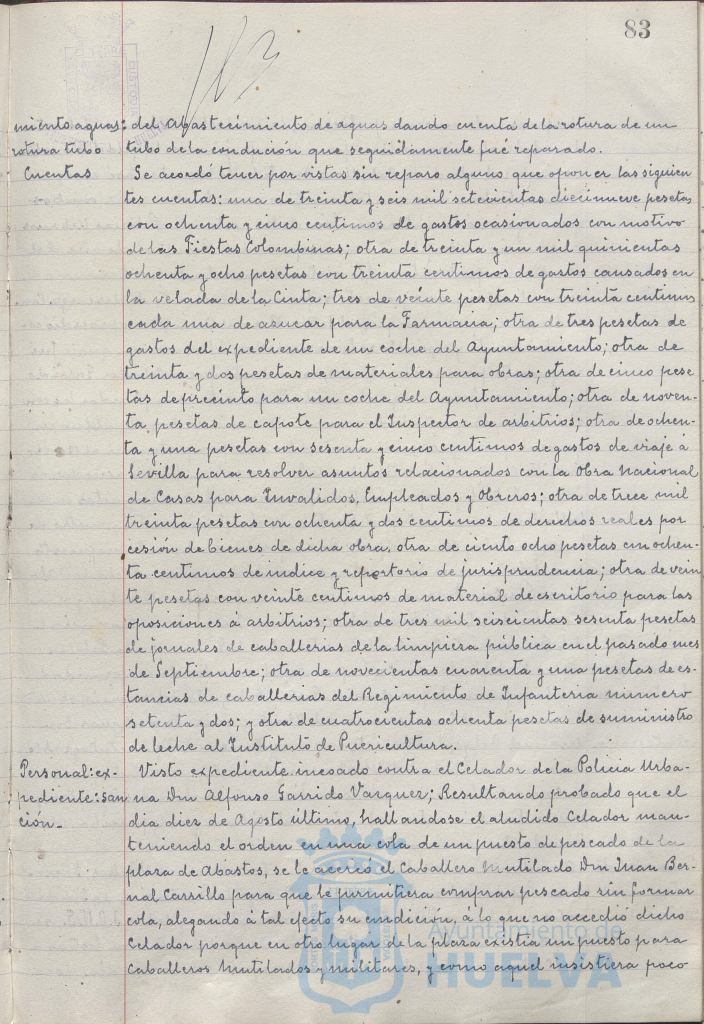 83
miento aguas: del Abastecimiento de aguas dando cuenta de la rotura de un
rotura tubo tubo de la condución que seguidamente fué reparado.
Cuentas Se acordó tener por vistas sin reparo alguno que oponer las siguien
tes cuentas: una de treinta y seis mil setecientas diecinueve pesetas
con ochenta y cinco centimos de gastos ocasionados con motivo
de las Fiestas Colombinas; otra de treinta y un mil quinientas
ochenta y ocho pesetas con treinta centimos de gastos causados en
la velada de la Cinta; tres de veinte pesetas con treinta centimos
cada una de azucar para la Farmacia; otra de tres pesetas de
gastos del expediente de un coche del Ayuntamiento; otra de
treinta y dos pesetas de materiales para obras; otra de cinco pese
tas de precinto para un coche del Ayuntamiento; otra de noven-
ta pesetas de capote para el Inspector de arbitrios; otra de ochen-
ta y una pesetas con sesenta y cinco centimos de gastos de viaje á
Sevilla para resolver asuntos relacionados con la Obra Nacional
de Casas para Invalidos, Empleados y Obreros; otra de trece mil
treinta pesetas con ochenta y dos centimos de derechos reales por
cesión de bienes de dicha obra, otra de ciento ocho pesetas con ochen-
ta centimos de indice y repertorio de jurisprudencia; otra de vein
te pesetas con veinte centimos de material de escritorio para las
oposiciones á arbitrios; otra de tres mil seiscientas sesenta pesetas
de jornales de caballerias de la limpieza pública en el pasado mes
de Septiembre; otra de novecientas cuarenta y una pesetas de es-
tancias de caballerias del Regimiento de Infanteria numero
setenta y dos; y otra de cuatrocientas ochenta pesetas de suministro
de leche al Instituto de Puericultura.
Personal: ex- Visto expediente incoado contra el Celador de la Policia Urba-
pediente: san na Don Alfonso Garrido Vazquez; Resultando probado que el
ción.- dia diez de Agosto último, hallandose el aludido Celador man-
teniendo el orden en una cola de un puesto de pescado de la
plaza de Abastos, se le acercó el Caballero Mutilado Don Juan Ber-
nal Carrillo para que le permitiera comprar pescado sin formar
cola, alegando á tal efecto su condición, á lo que no accedió dicho
Celador porque en otro lugar de la plaza existia un puesto para
Caballeros Mutilados y militares, y como aquel insistiera poco
Ayuntamiento de
HUELVA